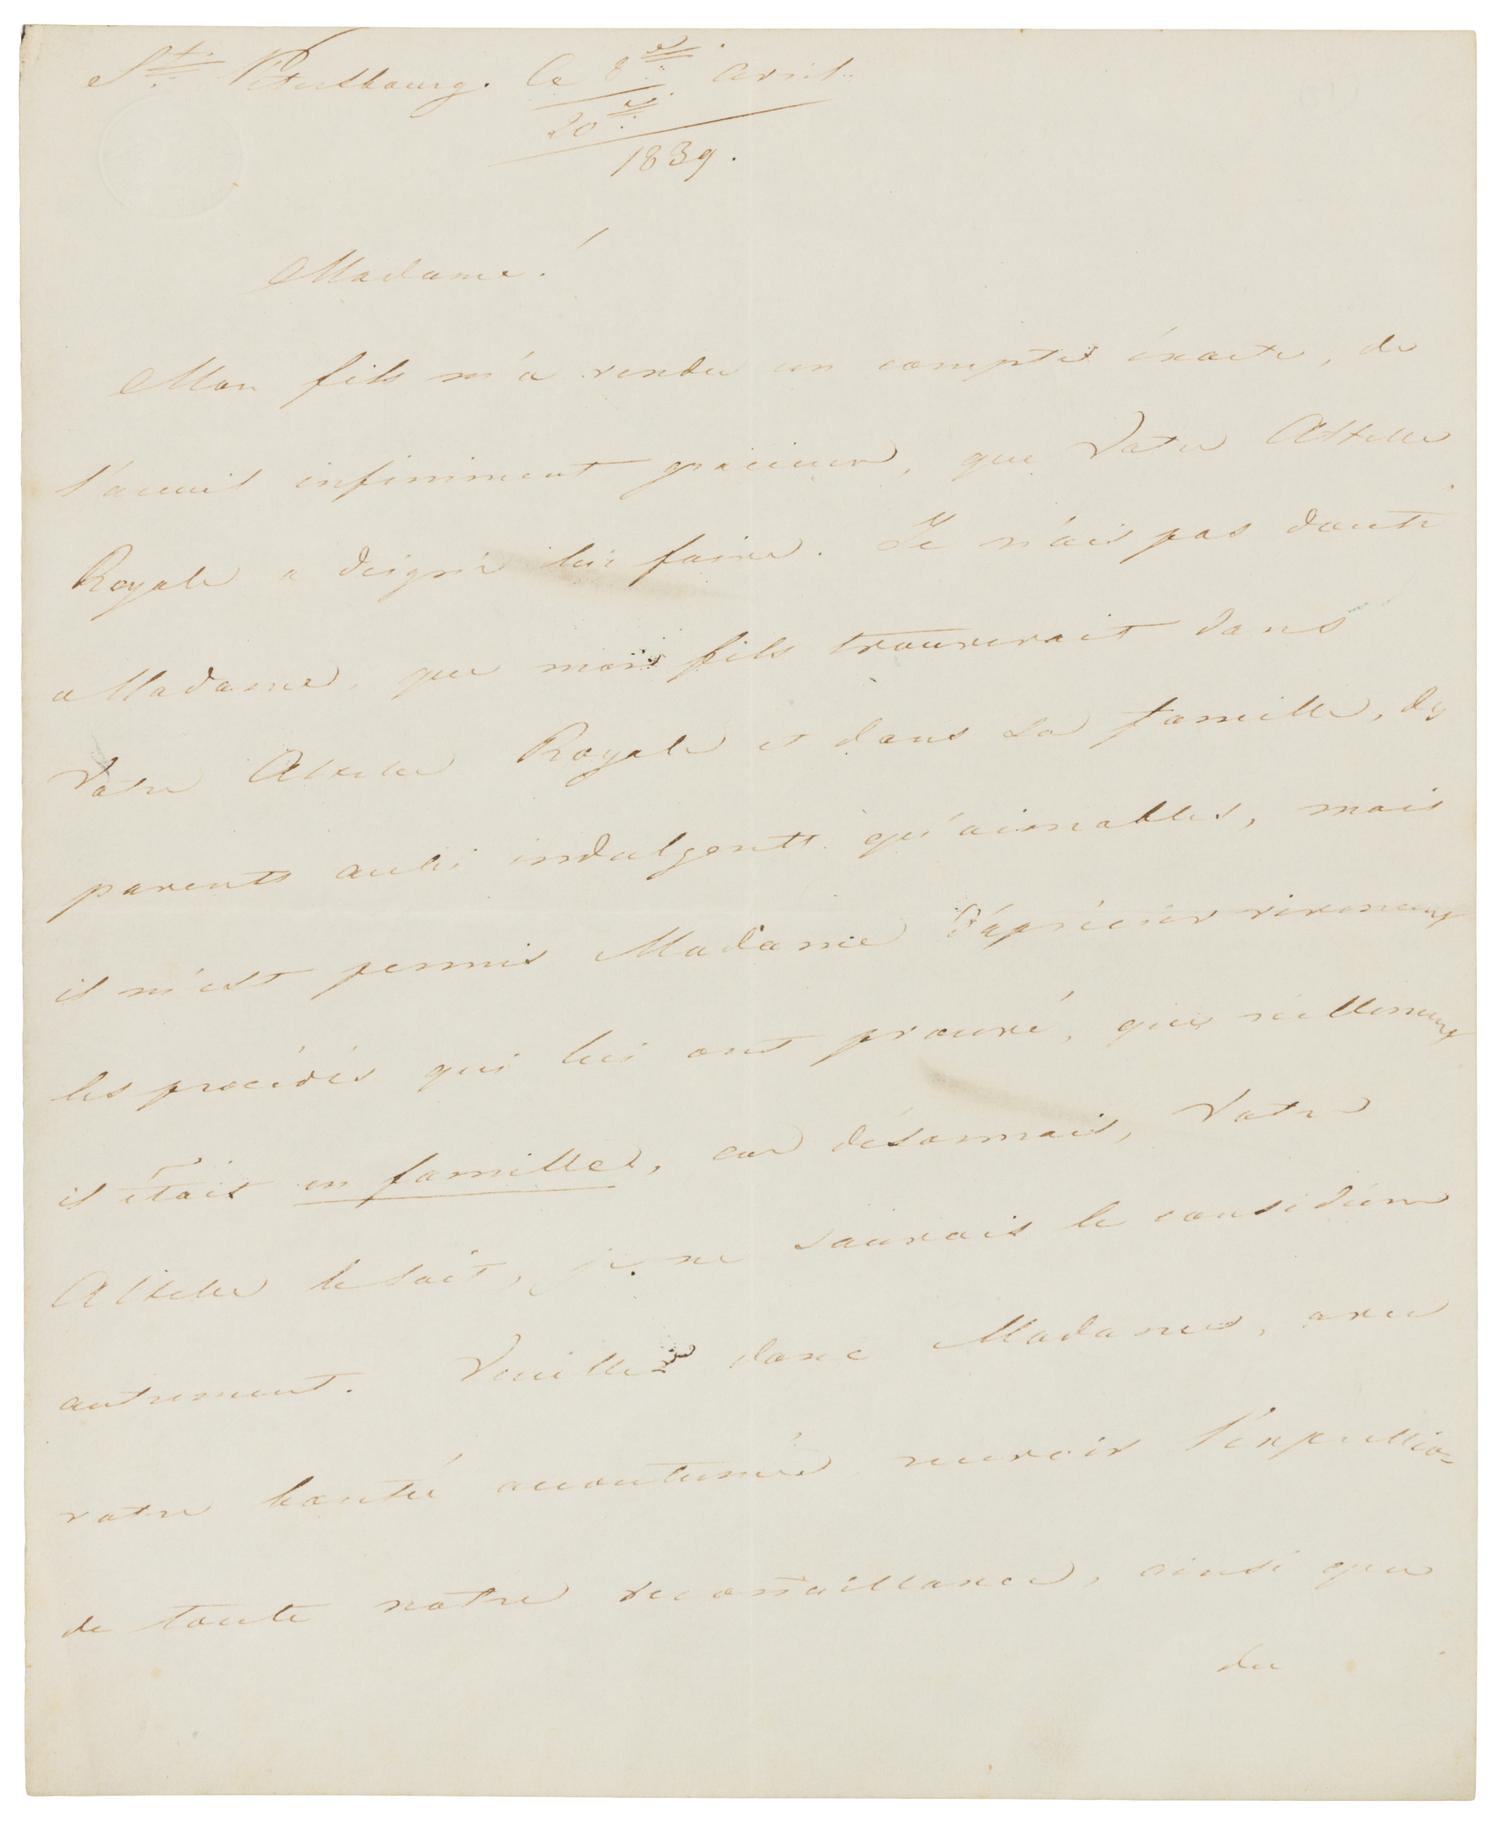 St. Petersbourg. Ce 8 Avril.
20
1839.
Madame!
Mon fils m'a rendu un compte éxacte, de
l'acceuil infiniment gracieux, que Votre Altesse
Royale a deigné lui faire. Je n'ais pas douté
Madame, que mon fils trouverait dans
Votre Altesse Royale et dans sa famille, des
parents aussi indulgents qu'aimables, mais
il m'est permis Madame d'aprécier vivement
les procédés qui lui ont prouvé, que réellement
il était en famille, car désormais, Votre
Altesse le sait, je ne saurais le considérer
autrement. Veuillez donc Madame, avec
votre bonté accoutumée recevoir l'expression
de toute notre reconnaissance, ainsi que
du